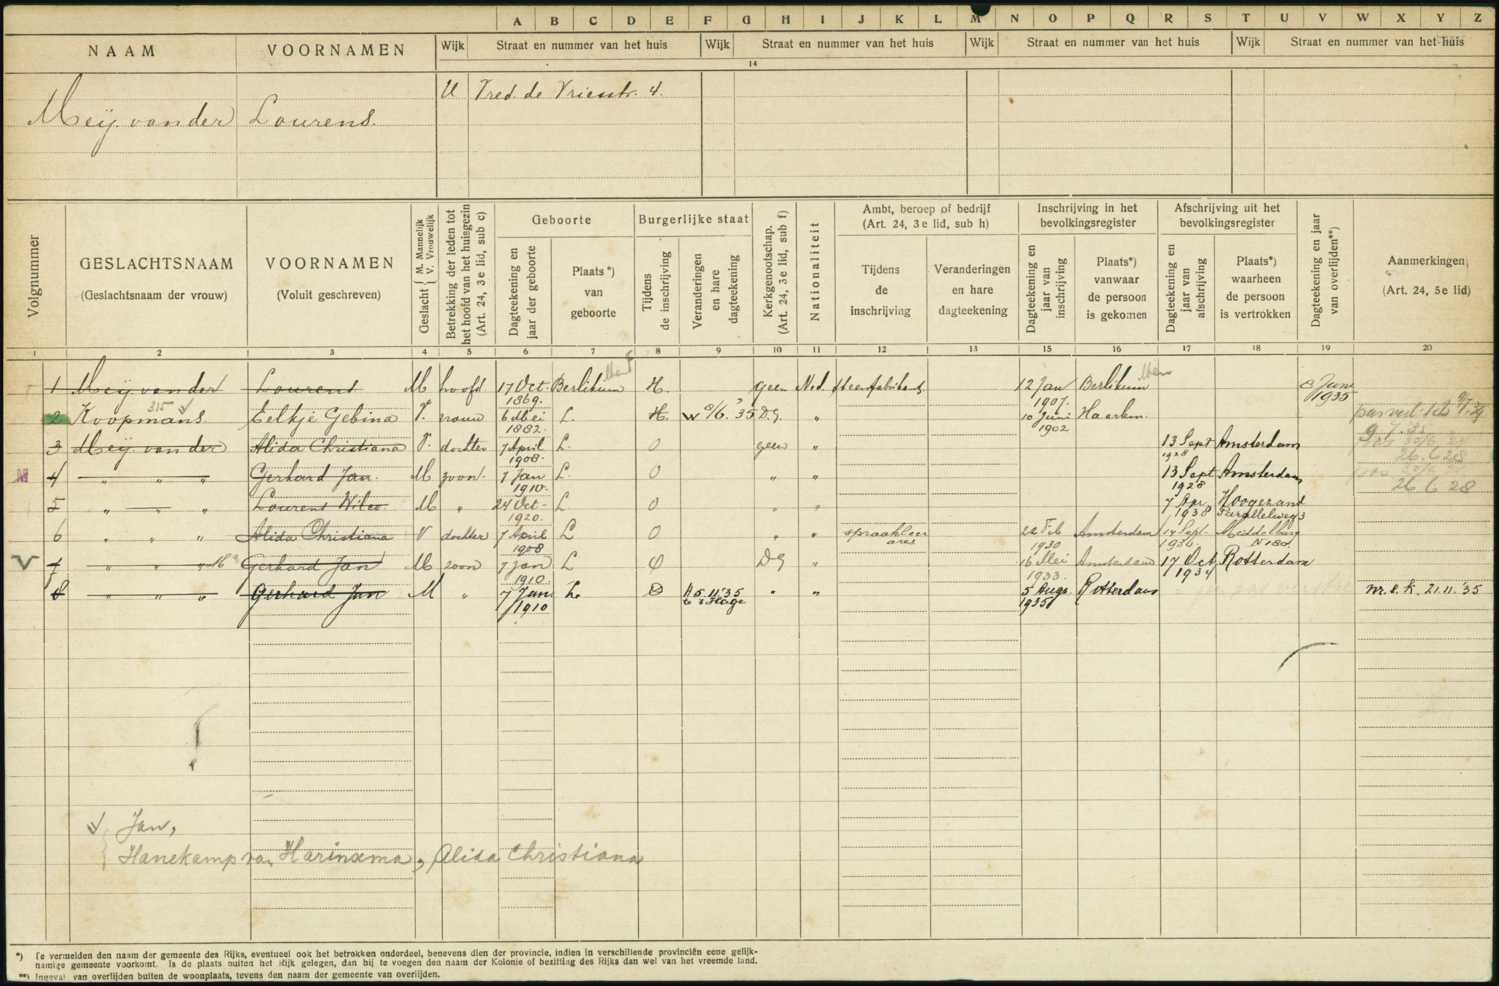 A B C D E F G H I J K L M N O P Q R S T U V W X Y Z
NAAM VOORNAMEN Wijk Straat en nummer van het huis Wijk Straat en nummer van het huis Wijk Straat en nummer van het huis Wijk Straat en nummer van het huis
14
U Fred. de Vriesstr. 4.
Meÿ. van der Lourens.
Volgnummer
GESLACHTSNAAM
(Geslachtsnaam der vrouw)
VOORNAMEN
(Voluit geschreven)
Geslacht { M. Mannelijk V. Vrouwelijk
Betrekking der leden tot het hoofd van het huisgezin (Art. 24, 3e lid, sub c)
Geboorte
Dagteekening en jaar der geboorte
Plaats*) van geboorte
Burgerlijke staat
Tijdens de inschrijving
Veranderingen en hare dagteekening
Kerkgenootschap. (Art. 24, 3e lid, sub f)
Nationaliteit
Ambt, beroep of bedrijf
(Art. 24, 3e lid, sub h)
Tijdens de inschrijving
Veranderingen en hare dagteekening
Inschrijving in het bevolkingsregister
Dagteekening en jaar van inschrijving
Plaats*) vanwaar de persoon is gekomen
Afschrijving uit het bevolkingsregister
Dagteekening en jaar van afschrijving
Plaats*) waarheen de persoon is vertrokken
Dagteekening en jaar van overlijden**)
Aanmerkingen
(Art. 24, 5e lid)
1 2 3 4 5 6 7 8 9 10 11 12 13 15 16 17 18 19 20
1 Meÿ van der Lourens M hoofd 17 Oct. 1869. Berlikum H. geen Ned. 12 Jan 1907. Berlikum 8 Juni 1935
2 Koopmans 315 Eelkje Gebina V. vrouw 6 Mei 1882. L. H. W 8/6. '35 D.G. " 10 Juni 1902 Haarlem.
3 Meÿ. van der Alida Christiana V. dochter 7 April 1908. L. O geen " 13 Sept 1928 Amsterdam 26.6.28
M 4 " " " Gerhard Jan. M zoon. 7 Jan 1910. L. O " " 13 Sept 1928 Amsterdam 26 6 28
5 " " " Lourens Wilco M " 24 Oct. 1920. L O " " 7 Apr. 1938 Hoogezand Parallelweg 3
6 " " " Alida Christiana V dochter 7 April 1908 L O " " spraakleerares 22 Feb 1930 Amsterdam 14 Sept. 1936 Middelburg N 180
7 " " " Gerhard Jan M zoon 7 Jan 1910. L O DG " 16 Mei 1933. Amsterdam 17 Oct 1934 Rotterdam
8 " " " Gerhard Jan M " 7 Jan 1910 L. O H 5.11.'35 " " 5 Aug. 1935 Rotterdam 21.11.'35
Jan,
Hanekamp van Harinxma, Alida Christiana
*) Te vermelden den naam der gemeente des Rijks, eventueel ook het betrokken onderdeel, benevens dien der provincie, indien in verschillende provinciën eene gelijk-
namige gemeente voorkomt. Is de plaats buiten het Rijk gelegen, dan bij te voegen den naam der Kolonie of bezitting des Rijks dan wel van het vreemde land.
**) Ingeval van overlijden buiten de woonplaats, tevens den naam der gemeente van overlijden.